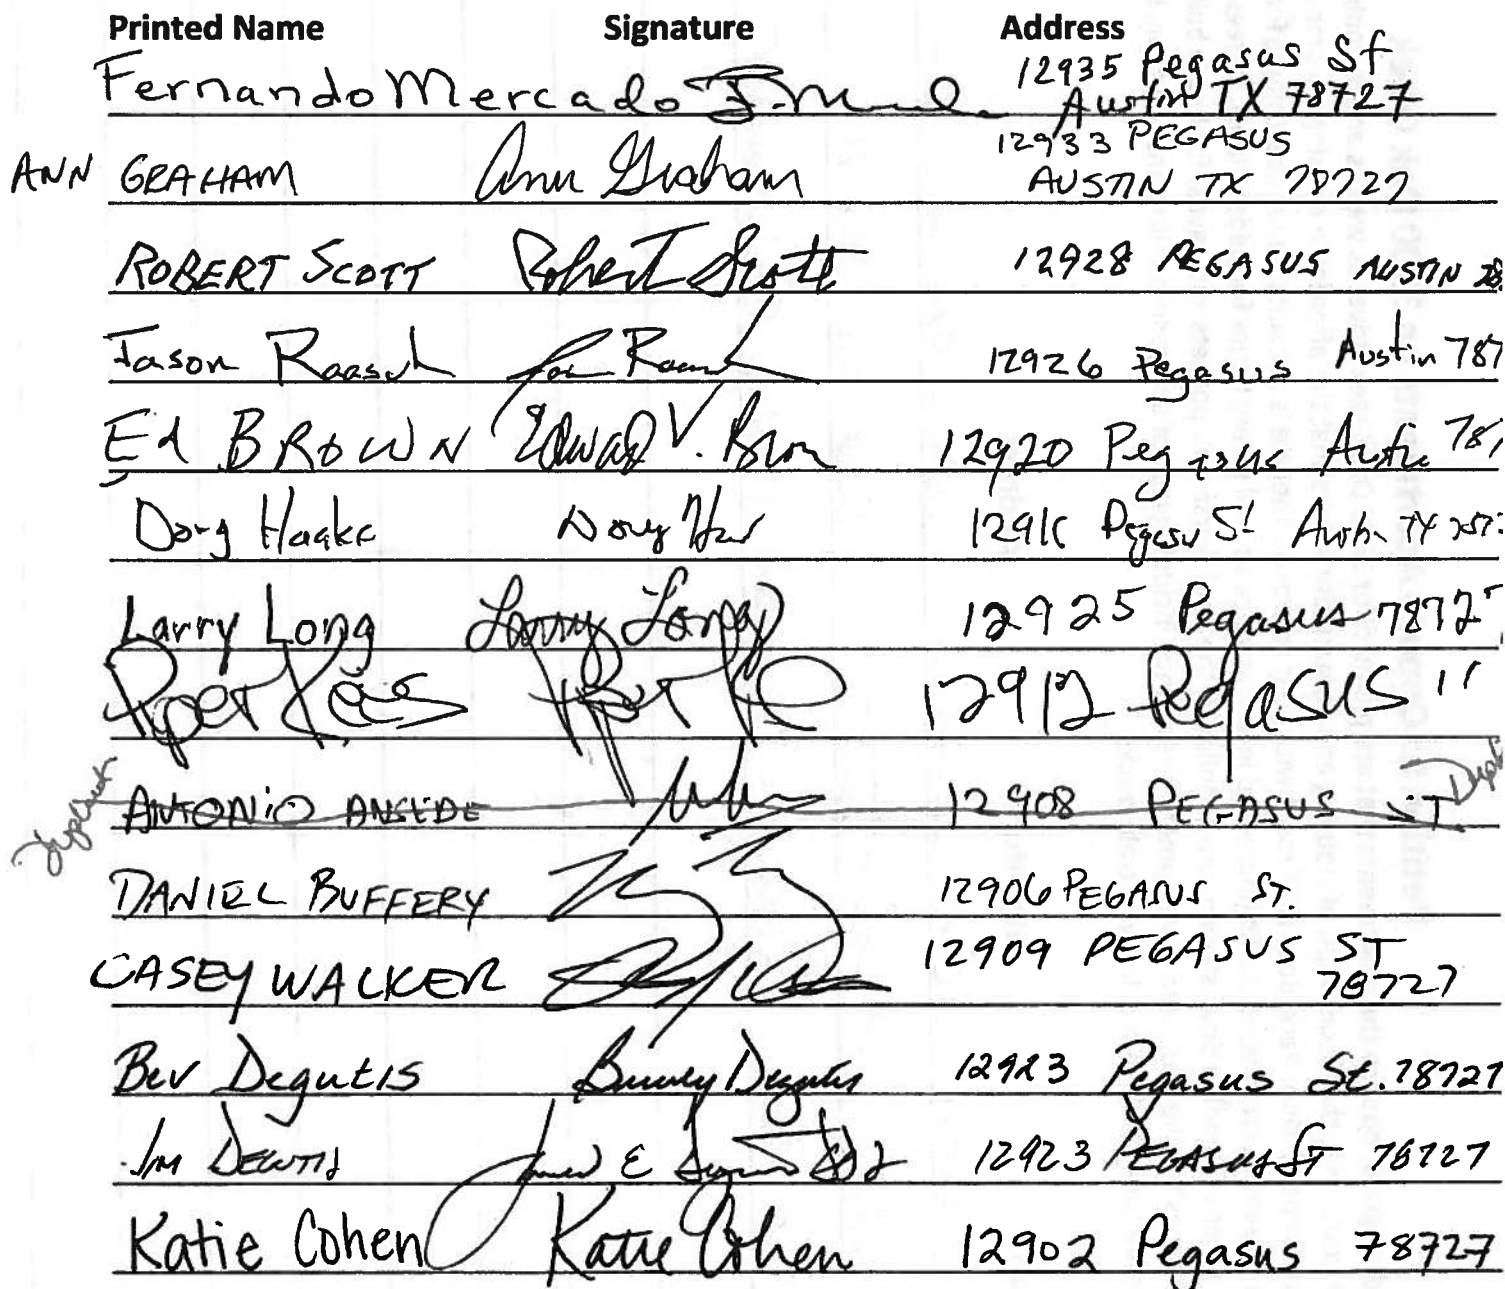 Printed Name Signature Address
Fernando Mercado F. M 12935 Pegasus St
Austin TX 78727
ANN GRAHAM Ann Graham 12933 PEGASUS
AUSTIN TX 78727
ROBERT SCOTT Robert Scott 12928 PEGASUS AUSTIN 78
Jason Raasch 12926 Pegasus Austin 787
Ed BROWN Edward V. Brown 12920 Pegasus Austin 787
Doug Haake Doug 1291 Pegasus St Austin TX
Larry Long Larry Long 12925 Pegasus 78727
Piper Kees Piper 12912 Pegasus "
ANTONIO ANSEDE 12908 PEGASUS ST
DANIEL BUFFERY 12906 PEGASUS ST.
CASEY WALKER 12909 PEGASUS ST
78727
Bev Degutis Beverly Degutis 12923 Pegasus St. 78727
Jim DEGUTIS James E 12923 PEGASUS ST 78727
Katie Cohen Katie Cohen 12902 Pegasus 78727